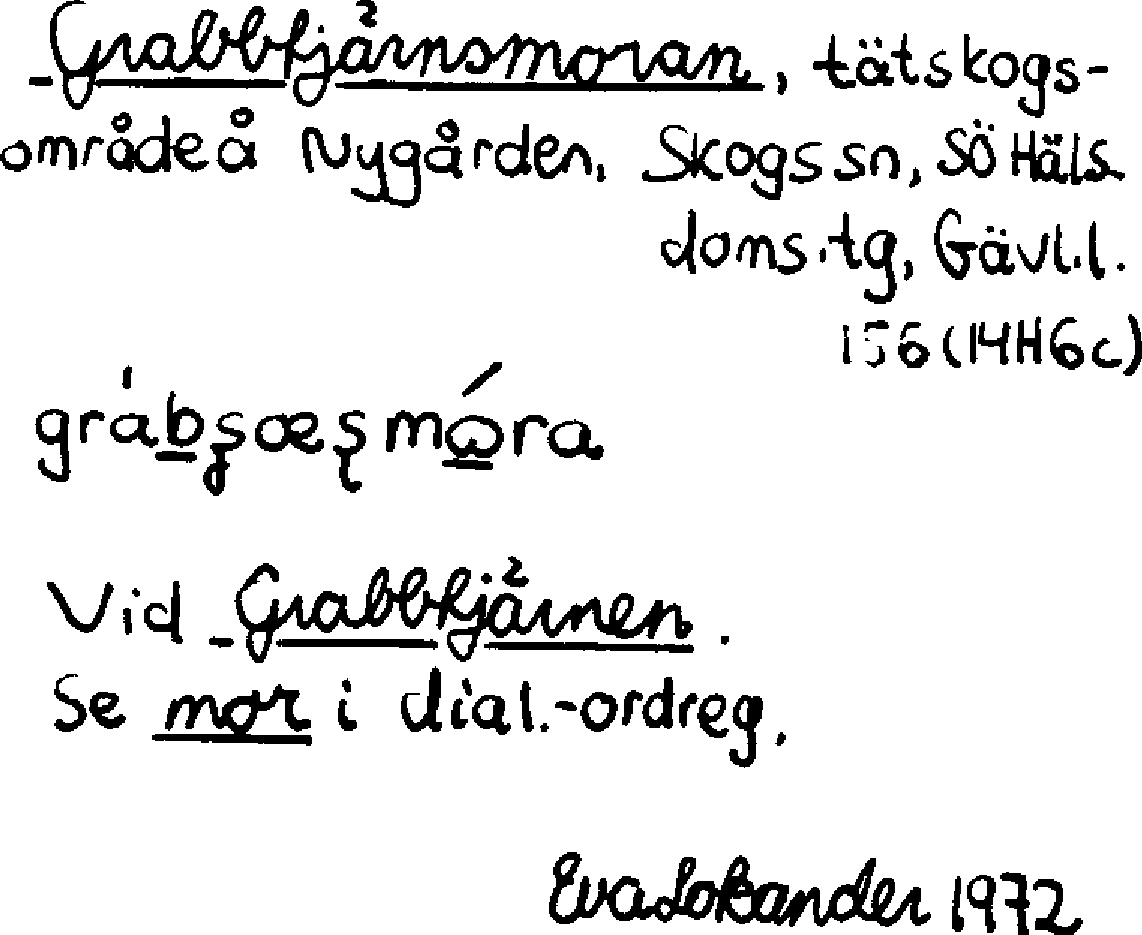 -Grabbtjärnsmoran, tätskogs-
område å Nygården, Skogs sn, SÖ Häls.
doms.tg, Gävl.l.
156 (14H6c)
Vid -Grabbtjärnen.
Se mor i dial.-ordreg.
Eva 1972